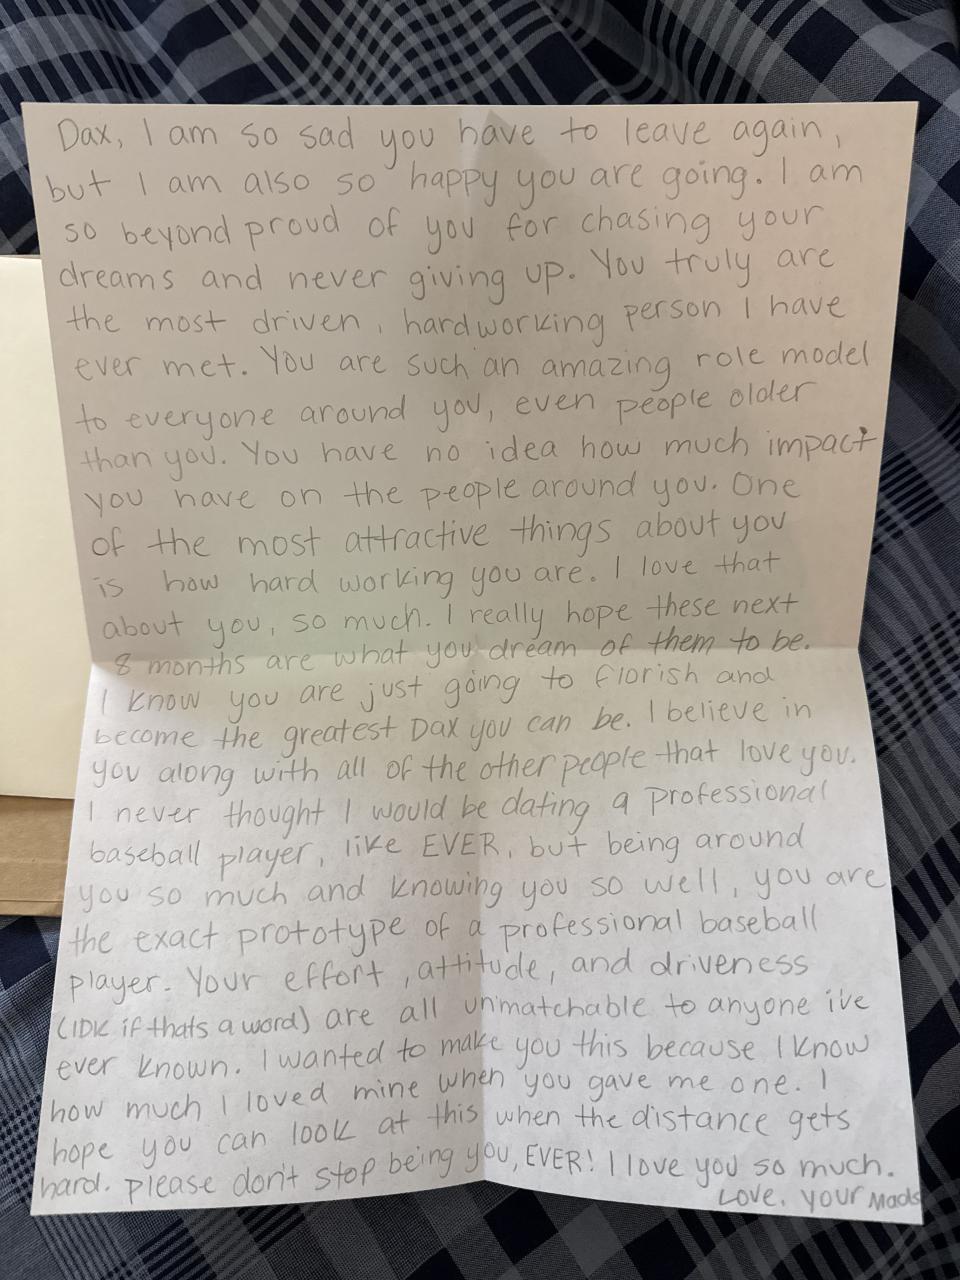 Dax, I am so sad you have to leave again,
but I am also so happy you are going. I am
so beyond proud of you for chasing your
dreams and never giving up. You truly are
the most driven, hardworking person I have
ever met. You are such an amazing role model
to everyone around you, even people older
than you. You have no idea how much impact
you have on the people around you. One
of the most attractive things about you
is how hard working you are. I love that
about you, so much. I really hope these next
8 months are what you dream of them to be.
I know you are just going to florish and
become the greatest Dax you can be. I believe in
you along with all of the other people that love you.
I never thought I would be dating a professional
baseball player, like EVER, but being around
you so much and knowing you so well, you are
the exact prototype of a professional baseball
player. Your effort, attitude, and driveness
(IDK if thats a word) are all unmatchable to anyone ive
ever known. I wanted to make you this because I know
how much I loved mine when you gave me one. I
hope you can look at this when the distance gets
hard. please don't stop being you, EVER! I love you so much.
Love, your Mads